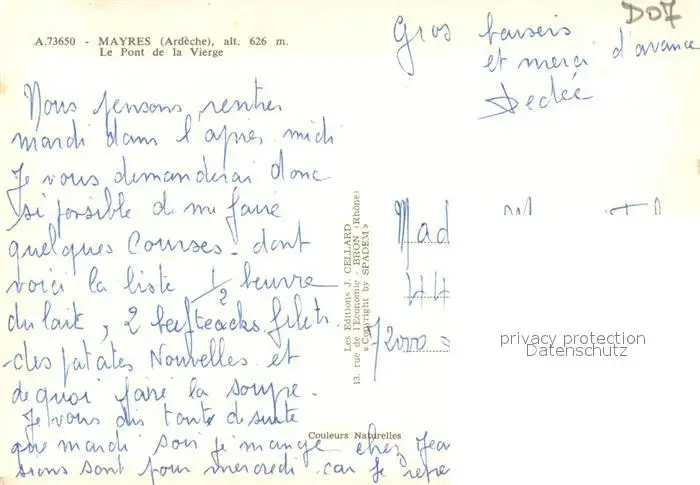 D07
A.73650 - MAYRES (Ardèche), alt. 626 m.
Le Pont de la Vierge
Gros baisers
et merci d'avance
Dedée
Nous pensons rentrer
mardi dans l'après midi
Je vous demanderai donc
si possible de me faire
quelques courses - dont
voici la liste 1/2 beurre
du lait, 2 beefteacks filets
des patates Nouvelles et
de quoi faire la soupe.
Je vous dis toute de suite
que mardi soir je mange chez Jea
sions sont pour mercredi car je repr
Les Editions J. CELLARD
13, rue de l'Economie - BRON (Rhône)
« Copyright by SPADEM »
Couleurs Naturelles
Mad
72000
privacy protection
Datenschutz